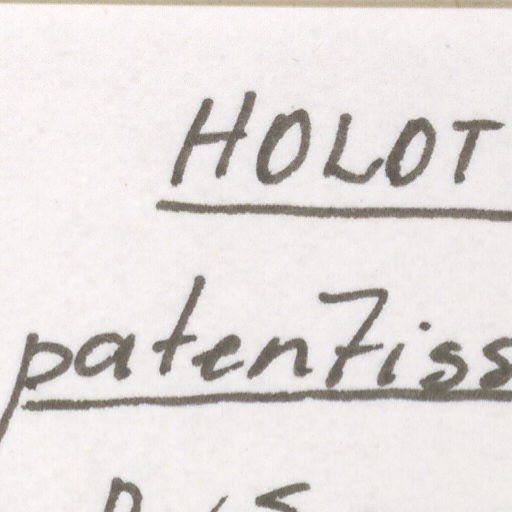 HOLOT
patentiss